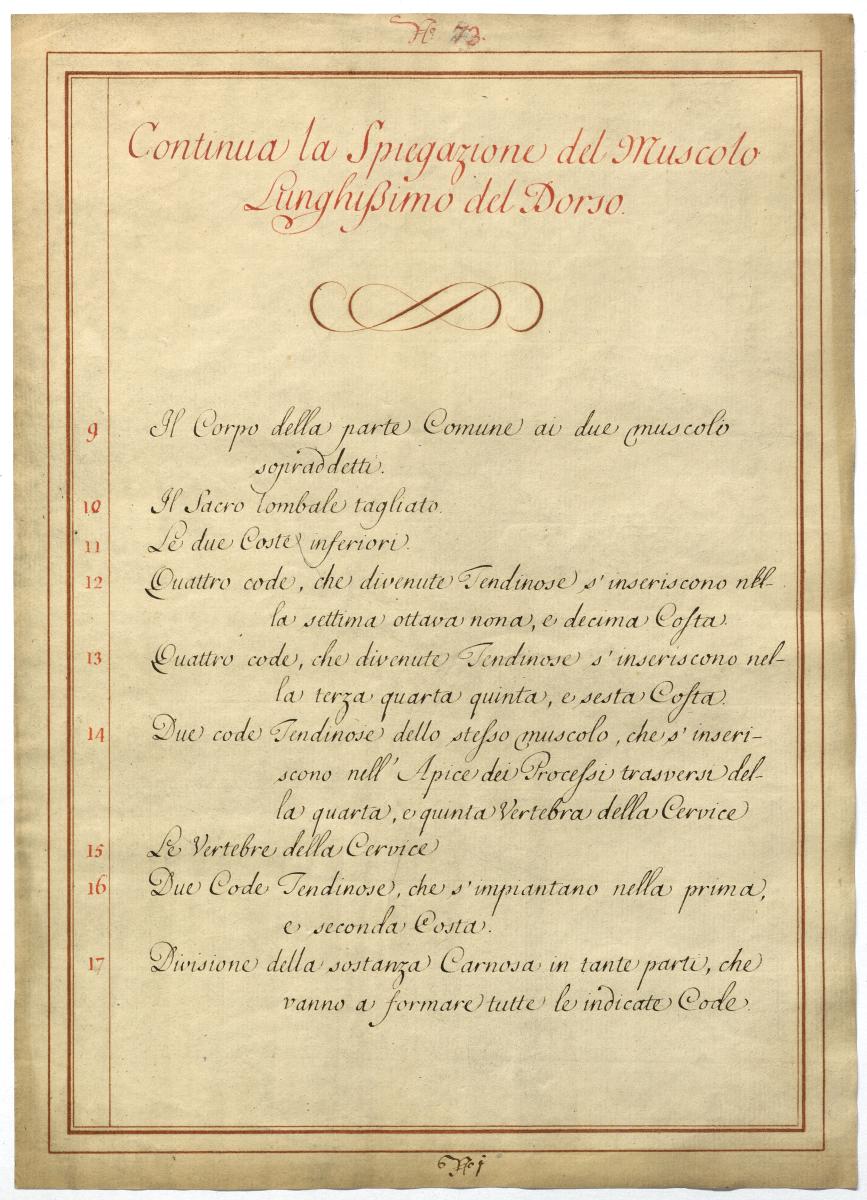 No. 73.
Continua la Spiegazione del Muscolo
Lunghißimo del Dorso.
9 Il Corpo della parte Comune ai due muscoli
sopraddetti.
10 Il Sacro lombale tagliato.
11 Le due Coste inferiori.
12 Quattro code, che divenute Tendinose s'inseriscono nel-
la settima ottava nona, e decima Costa.
13 Quattro code, che divenute Tendinose s'inseriscono nel-
la terza quarta quinta, e sesta Costa.
14 Due code Tendinose dello stesso muscolo, che s'inseri-
scono nell'Apice dei Processi trasversi del-
la quarta, e quinta Vertebra della Cervice
15 Le Vertebre della Cervice
16 Due Code Tendinose, che s'impiantano nella prima,
e seconda Costa.
17 Divisione della sostanza Carnosa in tante parti, che
vanno a formare tutte le indicate Code.